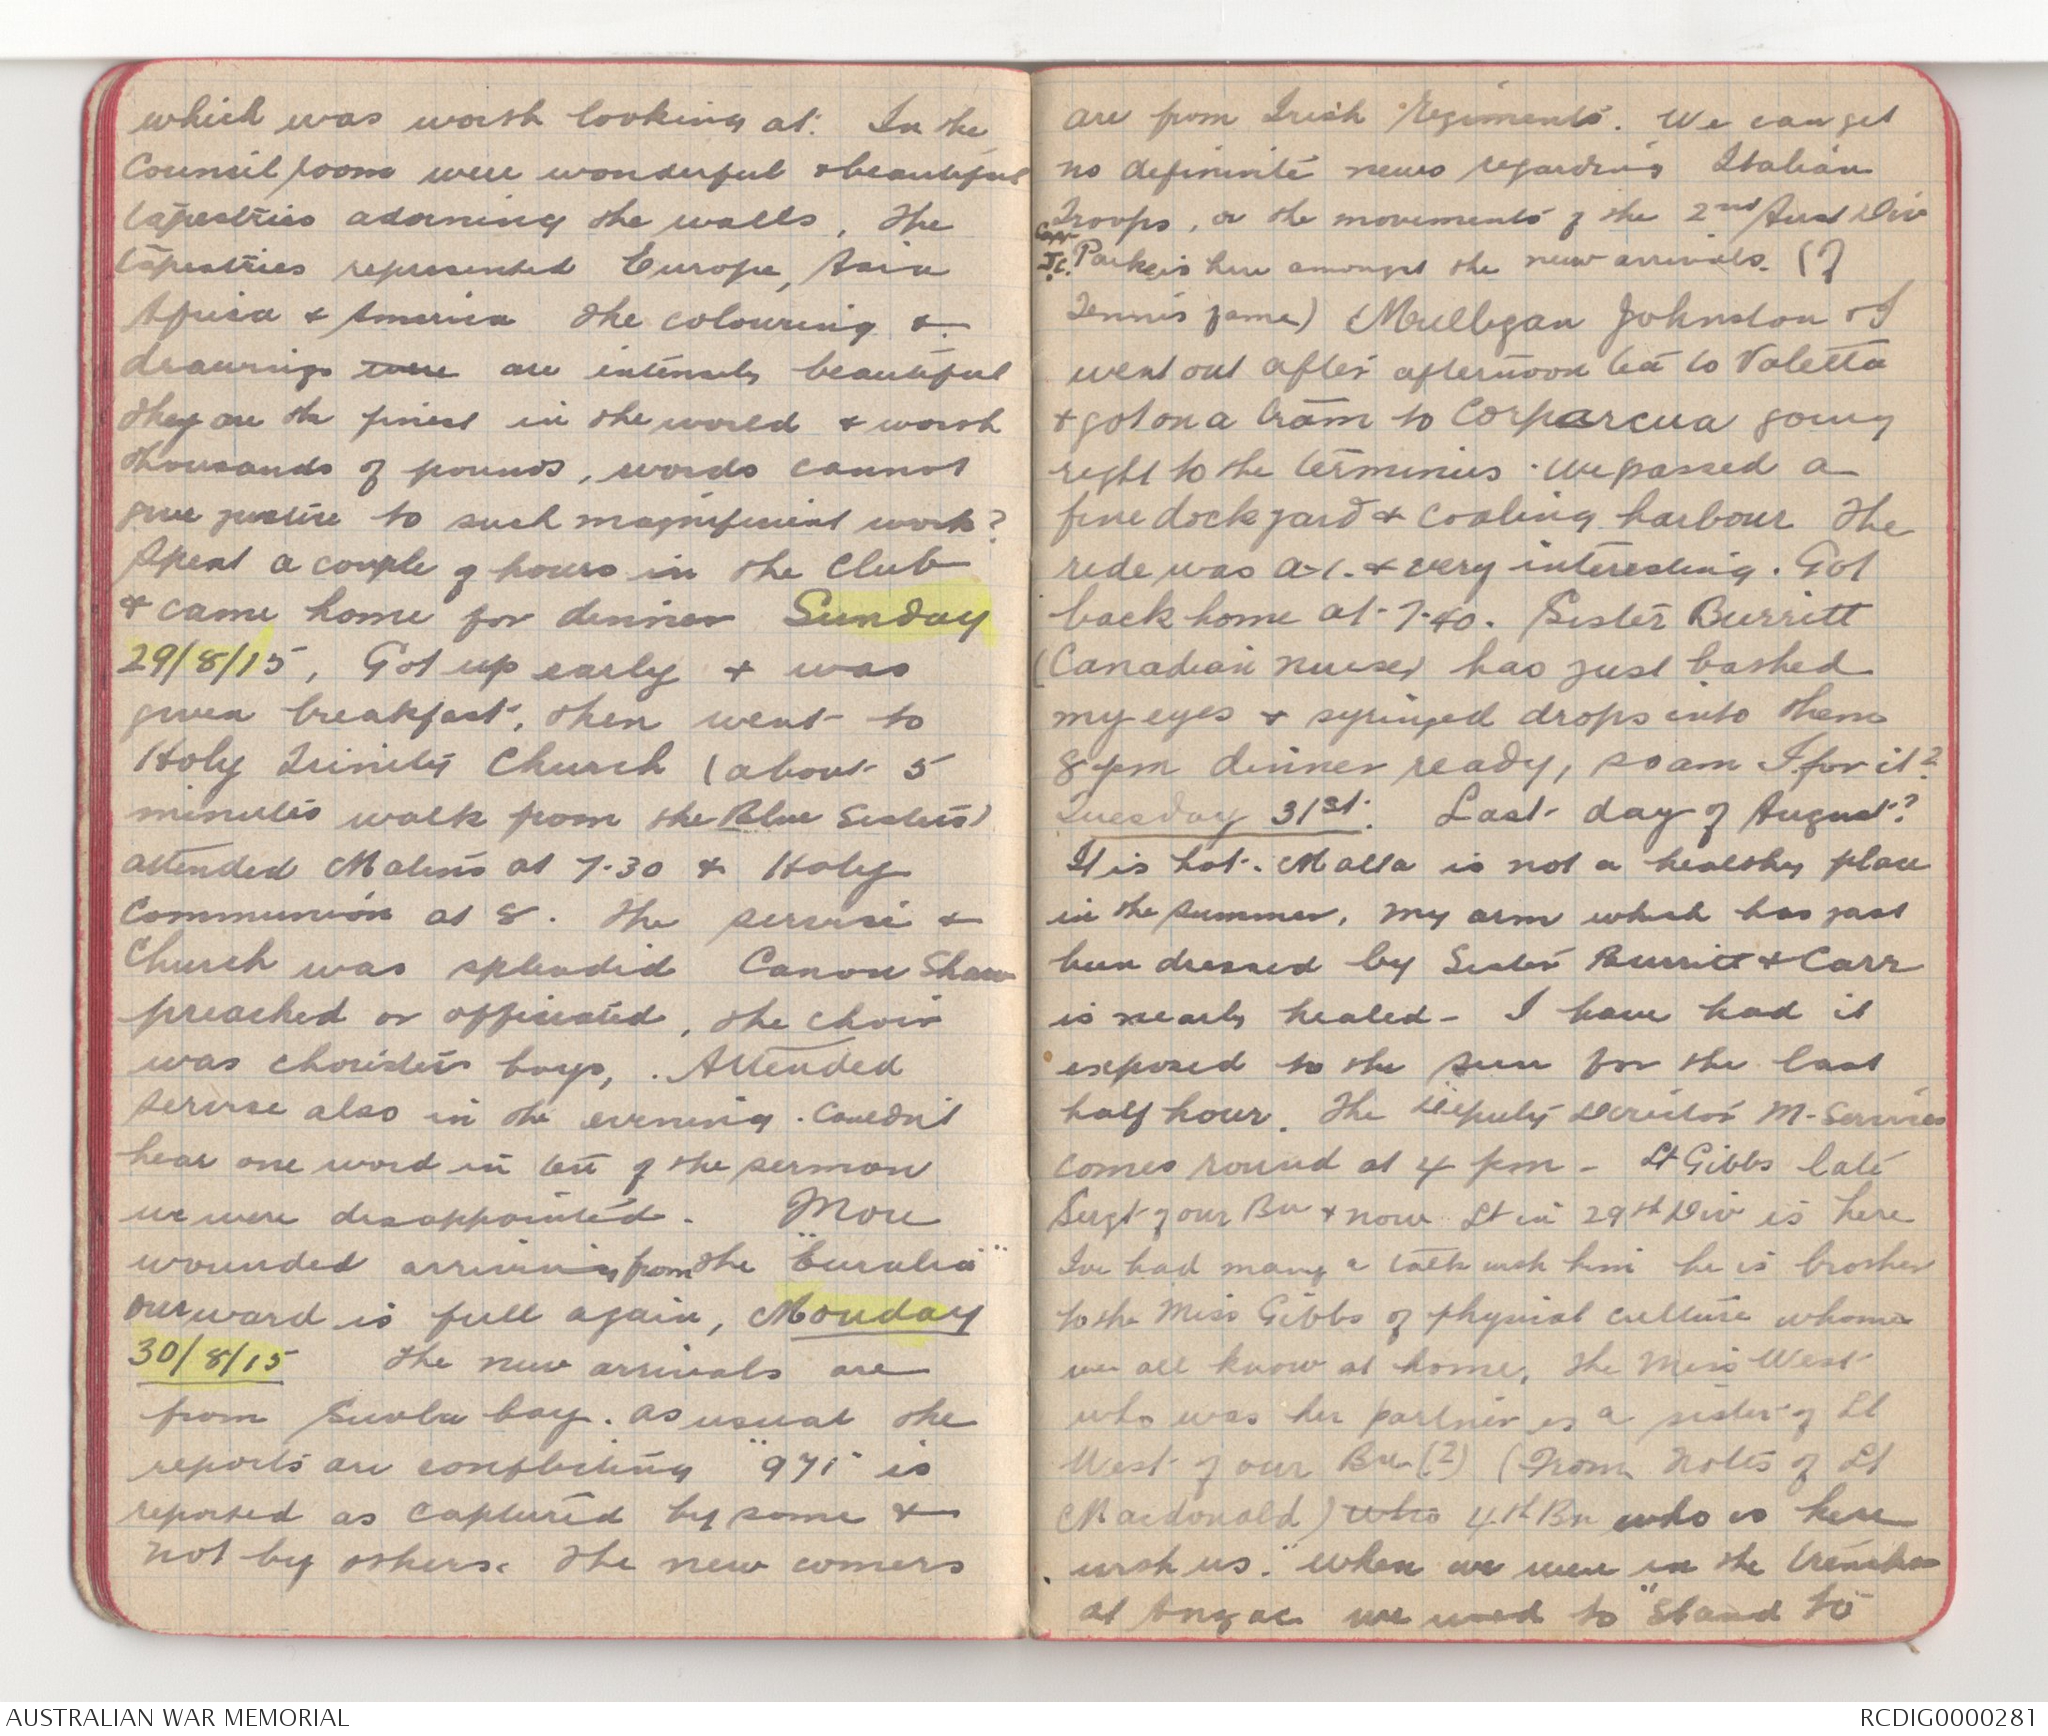 which was worth looking at. In the
Council room were wonderful & beautiful
tapestries adorning the walls, The
tapestries represented Europe, Asia
Africa & America The colouring &
drawings were are intensely beautiful
they are the finest in the world & worth
thousands of pounds, words cannot
give justice to such magnificient work?
Spent a couple of hours in the Club
& came home for dinner Sunday
29/8/15, Got up early & was
given breakfast, then went to
Holy Trinity Church (about 5
minutes walk from the Blue Sisters)
attended Matins at 7.30 & Holy
Communion at 8. The service &
Church was splendid Canon Shaw
preached or officiated, the choir
was choristers boys, . Attended
service also in the evening. Couldn't
hear one word in ten of the sermon
we were disappointed. More
wounded arriving from the "Euralia"
our ward is full again, Monday
30/8/15 The new arrivals are
from Suvla bay. as usual the
reports are conflicting "971" is
reported as captured by some &
not by others. The new comers
are from Irish Regiments. We can get
no definite news regarding Italian
Troops, or the movements of the 2nd Aust Div
Capt J.C. Parke is here amongst the new arrivals. (?
Tennis fame) Mulligan Johnston & I
went out after afternoon tea to Valetta
& got on a tram to Corparcua going
right to the terminius. We passed a
fine dockyard & coaling harbour The
ride was a-1. & very interesting. Got
back home at 7-40. Sister Burritt
(Canadian nurse) has just bathed
my eyes & syringed drops into them
8 pm dinner ready, so am I for it?
Tuesday 31st. Last day of August?
It is hot. Malta is not a healthy place
in the summer, my arm which has just
been dressed by Sister Burritt & Carr
is nearly healed - I have had it
exposed to the sun for the last
half hour. The Deputy Director M. Services
comes round at 4 pm - Lt Gibbs late
Sergt of our Bn & now Lt in 29th Div is here
I've had many a talk with him he is brother
to the Miss Gibbs of physical culture whome
we all know at home, The Miss West
who was her partner is a sister of Lt
West of our Bn (?) (From notes of Lt
Macdonald) who 4th Bn who is here
with us. "When we were in the trenches
at Anzac we used to "Stand to
AUSTRALIAN WAR MEMORIAL
RCDIG0000281